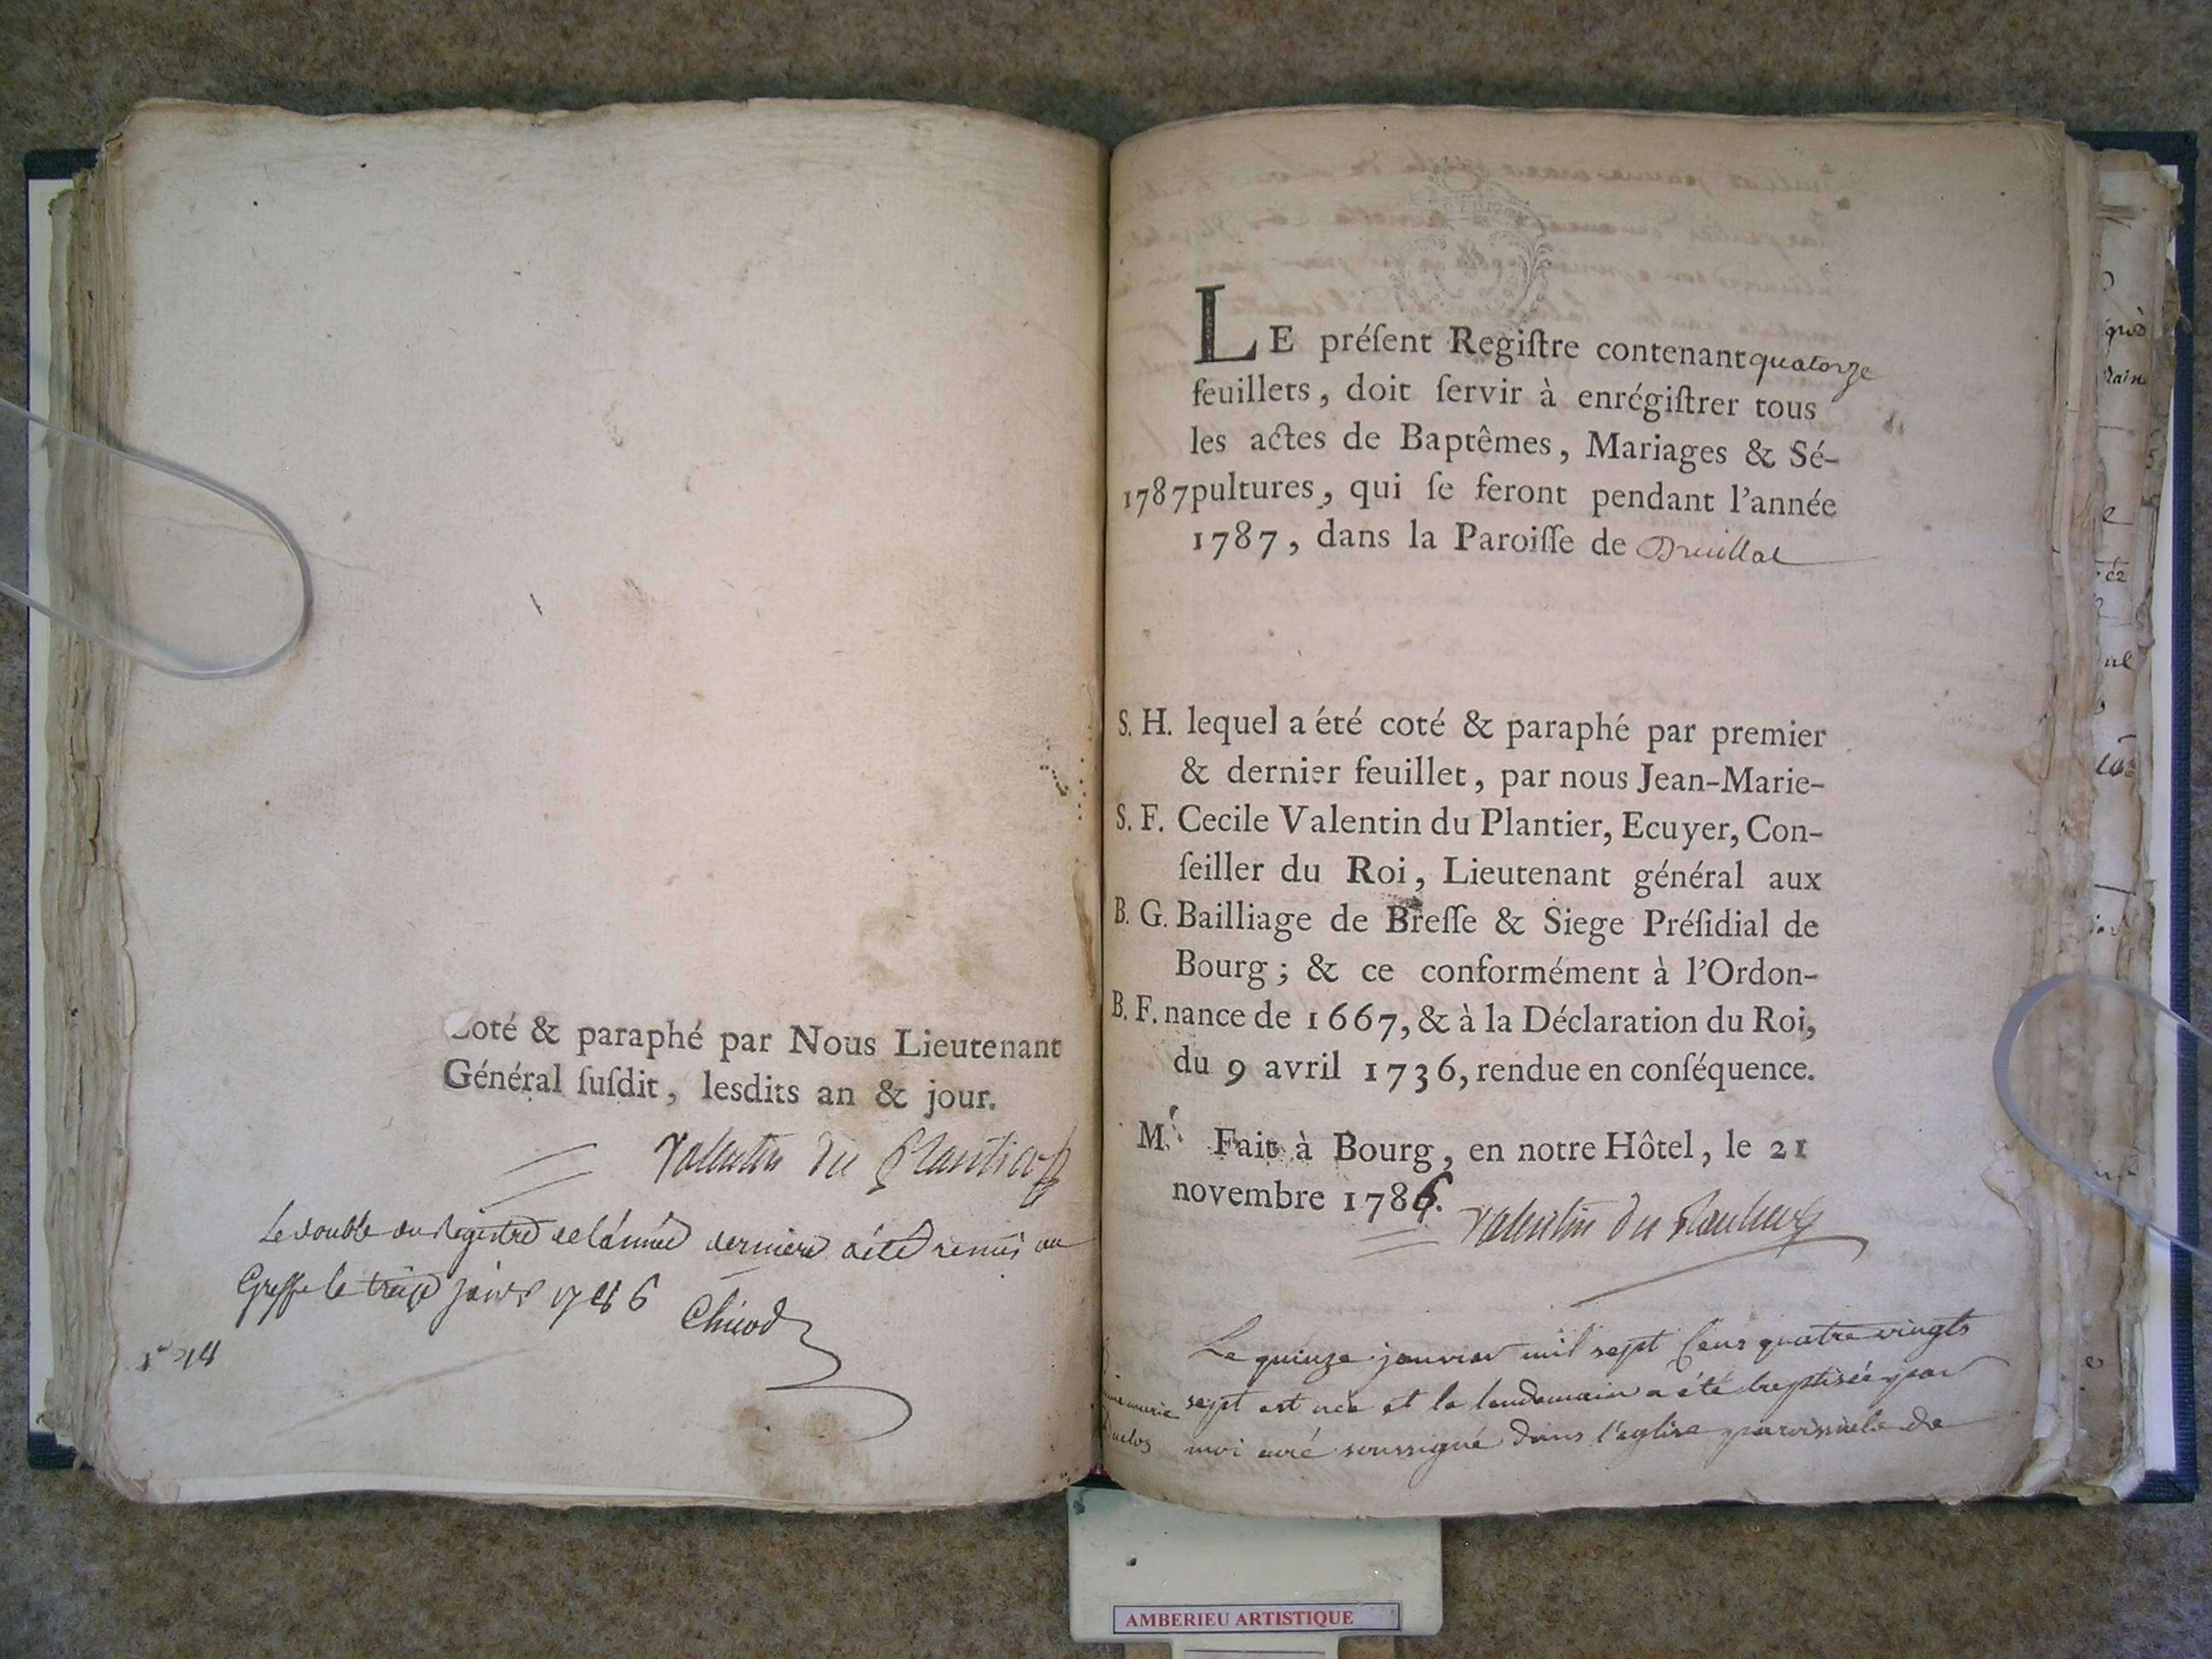 Coté & paraphé par Nous Lieutenant
Général ſuſdit, lesdits an & jour.
Valentin du Plantier
Le double du Registre de l'année derniere a été remis au
Greffe le treize janvr 1786 Chicod
LE préſent Regiſtre contenant quatorze
feuillets, doit ſervir à enrégiſtrer tous
les actes de Baptêmes, Mariages & Sé-
1787 pultures, qui ſe feront pendant l'année
1787, dans la Paroiſſe de Druillat
S. H. lequel a été coté & paraphé par premier
& dernier feuillet, par nous Jean-Marie-
S. F. Cecile Valentin du Plantier, Ecuyer, Con-
ſeiller du Roi, Lieutenant général aux
B. G. Bailliage de Breſſe & Siege Préſidial de
Bourg ; & ce conformément à l'Ordon-
B. F. nance de 1667, & à la Déclaration du Roi,
du 9 avril 1736, rendue en conſéquence.
M. Fait à Bourg, en notre Hôtel, le 21
novembre 1786.
Valentin du Plantier
Le quinze janvier mil sept cens quatre vingts
sept est née et le lendemain a été baptisée par
moi curé soussigné dans l'eglise paroissiale de
marie
Duclos
AMBERIEU ARTISTIQUE